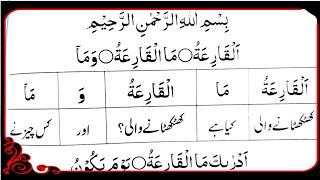 بِسْمِ اللهِ الرَّحْمٰنِ الرَّحِيْمِ
اَلْقَارِعَةُ ۝ مَا الْقَارِعَةُ ۝ وَمَآ
اَلْقَارِعَةُ مَا الْقَارِعَةُ وَ مَآ
کھٹکھٹانے والی کیا ہے کھٹکھٹانے والی؟ اور کس چیز نے
اَدْرٰىكَ مَا الْقَارِعَةُ ۝ يَوْمَ يَكُوْنُ